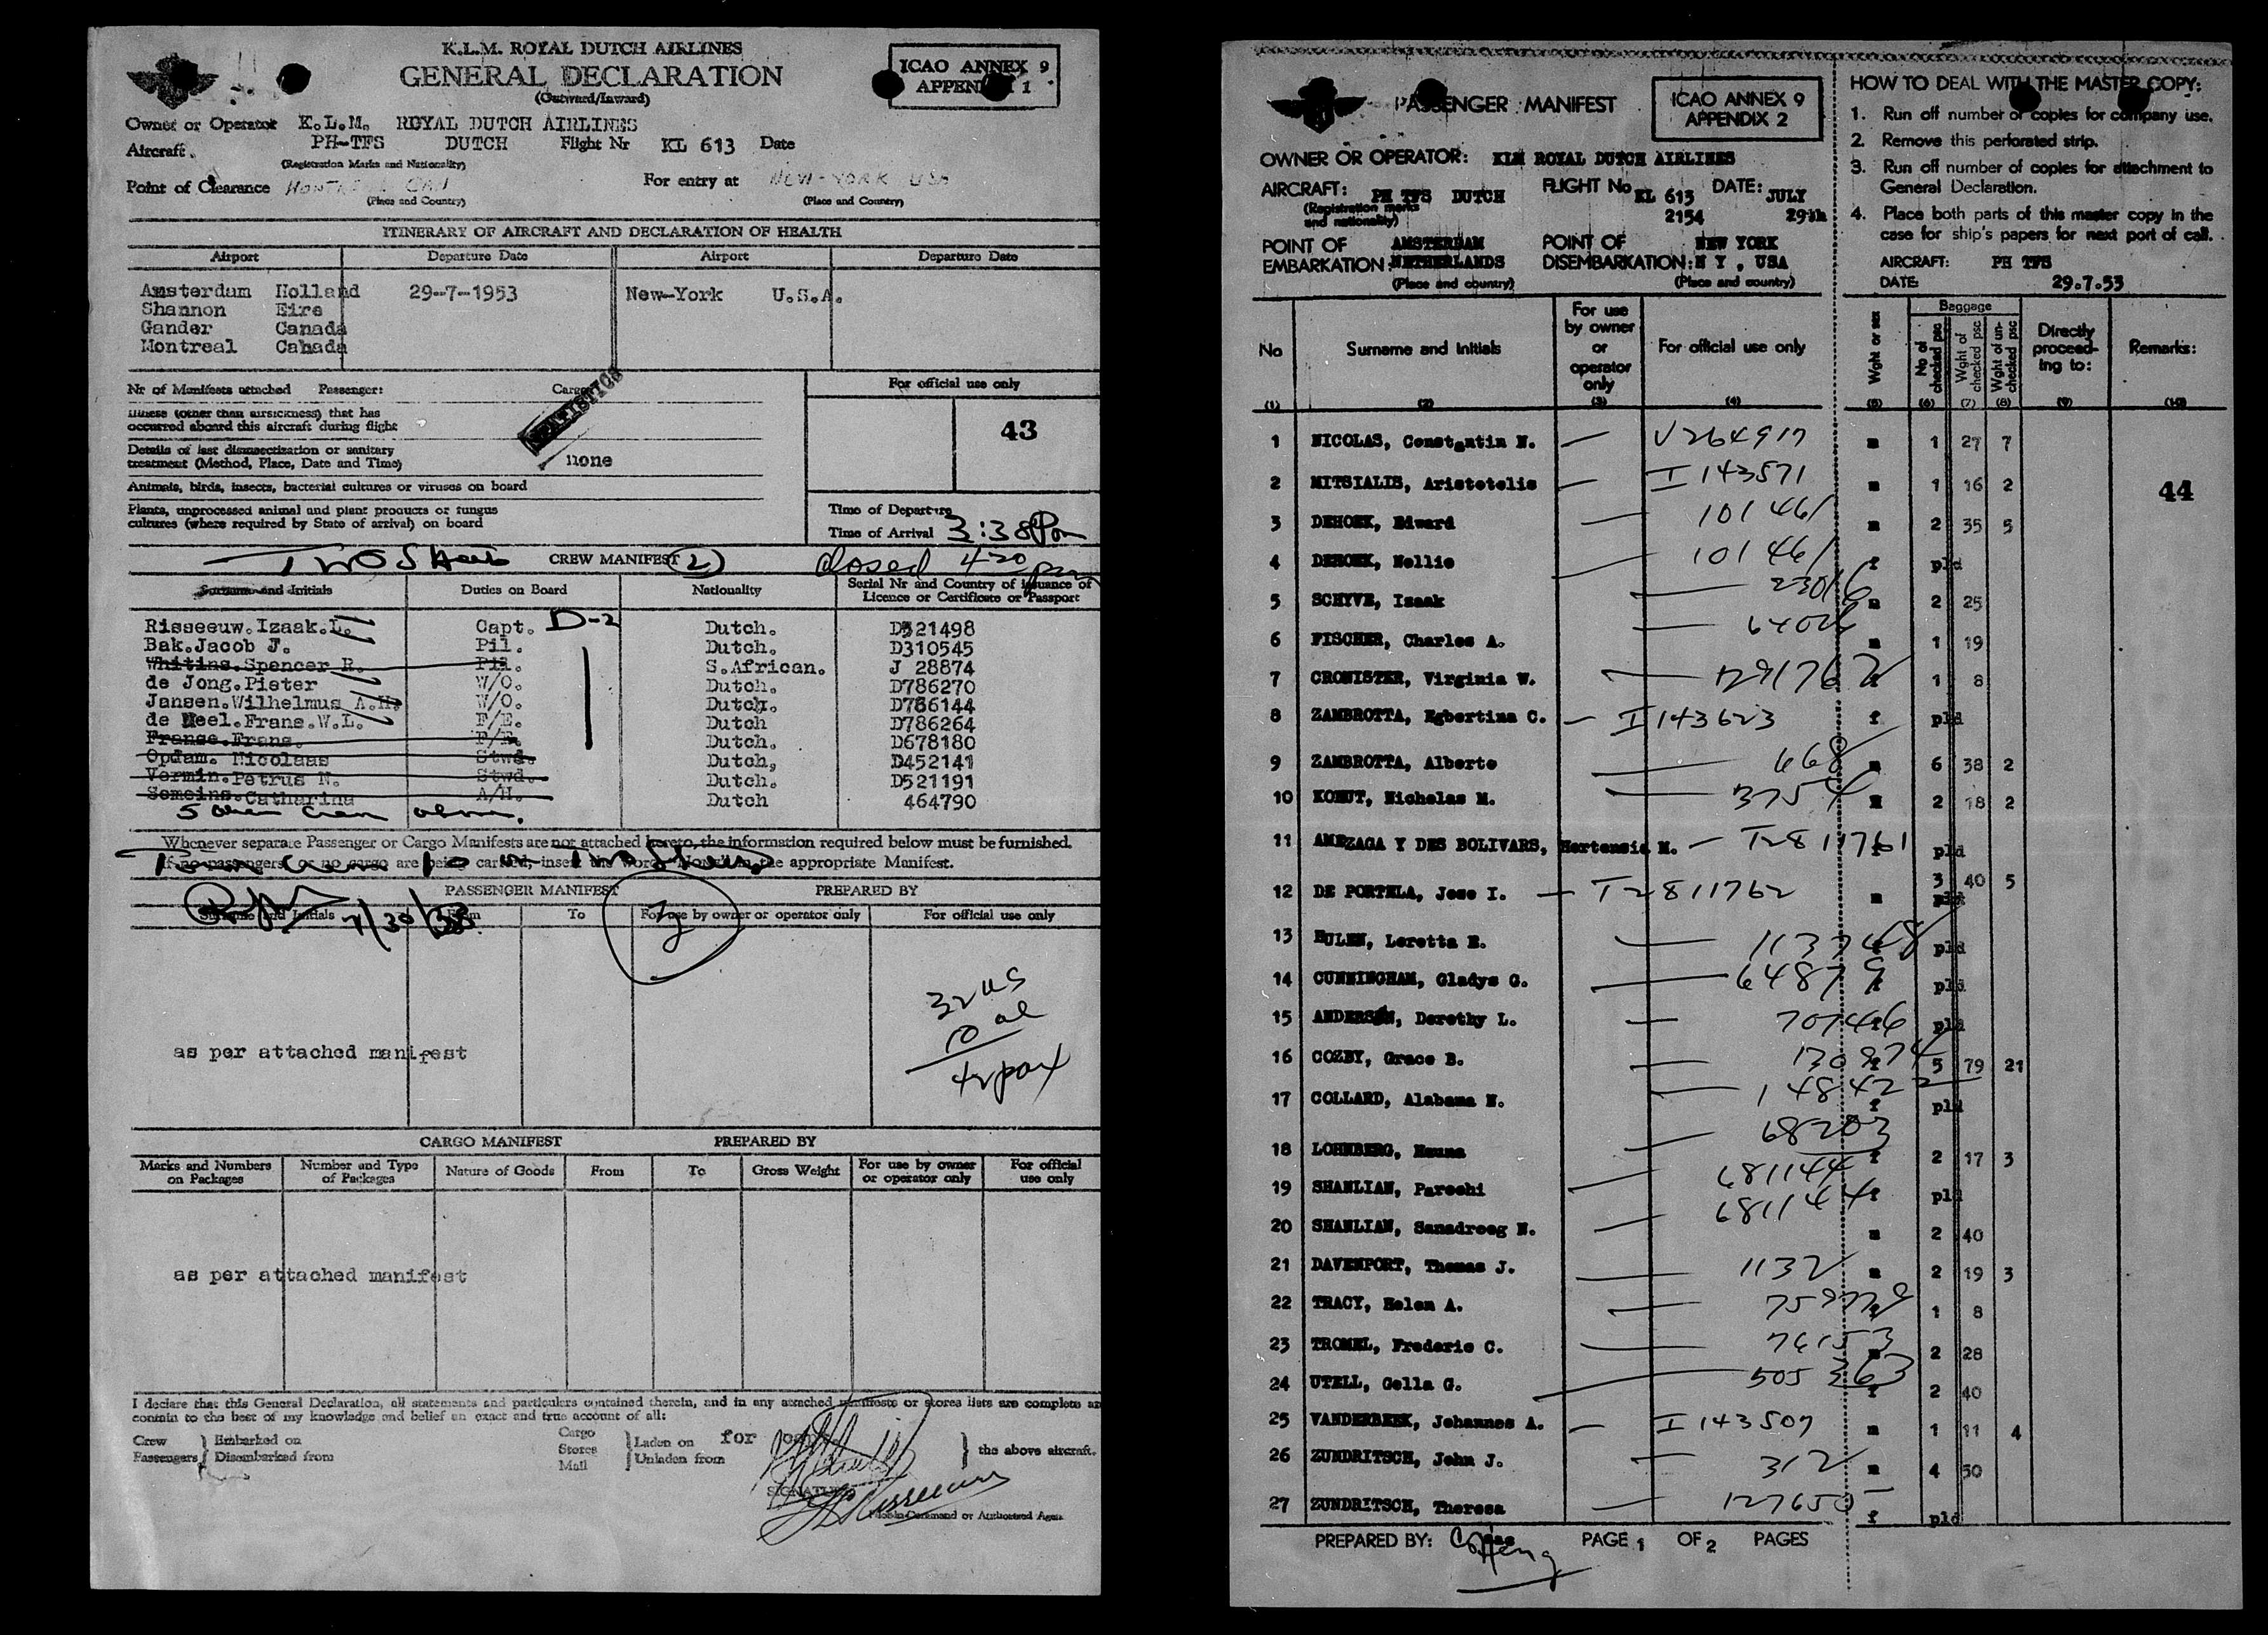 K.L.M. ROYAL DUTCH AIRLINES
GENERAL DECLARATION
(Outward/Inward)
ICAO ANNEX 9
APPENDIX 1
Owner or Operator K.L.M. ROYAL DUTCH AIRLINES
Aircraft. PH-TFS DUTCH Flight Nr KL 613 Date
(Registration Marks and Nationality)
Point of Clearance MONTREAL CAN For entry at NEW-YORK USA
(Place and Country) (Place and Country)
ITINERARY OF AIRCRAFT AND DECLARATION OF HEALTH
Airport Departure Date Airport Departure Date
Amsterdam Holland 29-7-1953 New-York U.S.A.
Shannon Eire
Gander Canada
Montreal Canada
Nr of Manifests attached Passenger: Cargo
For official use only
Illness (other than airsickness) that has
occurred aboard this aircraft during flight
STATISTICS
43
Details of last disinsectization or sanitary
treatment (Method, Place, Date and Time)
none
Animals, birds, insects, bacterial cultures or viruses on board
Plants, unprocessed animal and plant products or fungus
cultures (where required by State of arrival) on board
Time of Departure
Time of Arrival 3:38 Pm
Two Sheets CREW MANIFEST (2) closed 420 pm
Surname and Initials Duties on Board Nationality Serial Nr and Country of issuance of
Licence or Certificate or Passport
Risseeuw.Izaak.L. Capt. D-2 Dutch. D521498
Bak.Jacob J. Pil. Dutch. D310545
Whitins.Spencer R. Pil. S.African. J 28874
de Jong.Pieter W/O. Dutch. D786270
Jansen.Wilhelmus A.H. W/O. Dutch. D786144
de Neel.Frans.W.L. F/E. Dutch D786264
Franse.Frans. F/E. Dutch. D678180
Opdam. Nicolaas Stwd. Dutch, D452141
Vermin.Petrus N. Stwd. Dutch. D521191
Semeins.Catharina A/H. Dutch 464790
5
Whenever separate Passenger or Cargo Manifests are not attached hereto, the information required below must be furnished.
If no passengers or no cargo are being carried, insert the word "None" in the appropriate Manifest.
PASSENGER MANIFEST PREPARED BY
Surname and Initials From To For use by owner or operator only For official use only
7/30/53
32 US
10 al
42 pax
as per attached manifest
CARGO MANIFEST PREPARED BY
Marks and Numbers on Packages Number and Type of Packages Nature of Goods From To Gross Weight For use by owner or operator only For official use only
as per attached manifest
I declare that this General Declaration, all statements and particulars contained therein, and in any attached manifests or stores lists are complete an
contain to the best of my knowledge and belief an exact and true account of all:
Crew Embarked on Cargo Laden on for
Passengers Disembarked from Stores Unladen from the above aircraft.
Mail
SIGNATURE
Pilot-in-Command or Authorized Agent
PASSENGER MANIFEST
ICAO ANNEX 9
APPENDIX 2
OWNER OR OPERATOR: KLM ROYAL DUTCH AIRLINES
AIRCRAFT: PH TFS DUTCH FLIGHT No KL 613 DATE: JULY
(Registration marks and nationality) 2154 29th
POINT OF EMBARKATION: AMSTERDAM NETHERLANDS POINT OF DISEMBARKATION: NEW YORK N Y , USA
(Place and country) (Place and country)
HOW TO DEAL WITH THE MASTER COPY:
1. Run off number of copies for company use.
2. Remove this perforated strip.
3. Run off number of copies for attachment to
General Declaration.
4. Place both parts of this master copy in the
case for ship's papers for next port of call.
AIRCRAFT: PH TFS
DATE: 29.7.53
No Surname and Initials For use by owner or operator only For official use only Wght or sex Baggage No of checked psc Wght of checked psc Wght of un-checked psc Directly proceed-ing to: Remarks:
(1) (2) (3) (4) (5) (6) (7) (8) (9) (10)
1 NICOLAS, Constantin N. — V264917 m 1 27 7
2 MITSIALIS, Aristotelis — I 143571 m 1 16 2
44
3 DEHOEK, Edward — 101461 m 2 35 5
4 DEHOEK, Nellie — 101461 f pld
5 SCHYVE, Izaak — 23016 m 2 25
6 FISCHER, Charles A. — m 1 19
7 CRONISTER, Virginia W. — f 1 8
8 ZAMBROTTA, Egbertina C. — I 143623 f pld
9 ZAMBROTTA, Alberto — 668 m 6 38 2
10 KOHUT, Nicholas M. — 3754 m 2 18 2
11 AMEZAGA Y DES BOLIVARS, Hortensia M. — T2811761 pld
12 DE PORTELA, Jose I. — T2811762 m 3 40 5
13 HULEN, Loretta E. — pld
14 CUNNINGHAM, Gladys G. — 64879 f pld
15 ANDERSEN, Dorothy L. — 707446 pld
16 COZBY, Grace B. — 130874 f 5 79 21
17 COLLARD, Alabama N. — 148422 f pld
18 LOHNBERG, — 68203 f 2 17 3
19 SHANLIAN, Parechi — 681144 f pld
20 SHANLIAN, Sanadroog N. — 681144 m 2 40
21 DAVENPORT, Thomas J. — 1132 m 2 19 3
22 TRACY, Helen A. — f 1 8
23 TROMEL, Frederic C. — 76153 m 2 28
24 UTELL, Celia G. — 505363 f 2 40
25 VANDERBEEK, Johannes A. — I 143507 m 1 11 4
26 ZUNDRITSCH, John J. — 312 m 4 50
27 ZUNDRITSCH, Theresa — 127655 f pld
PREPARED BY: PAGE 1 OF 2 PAGES